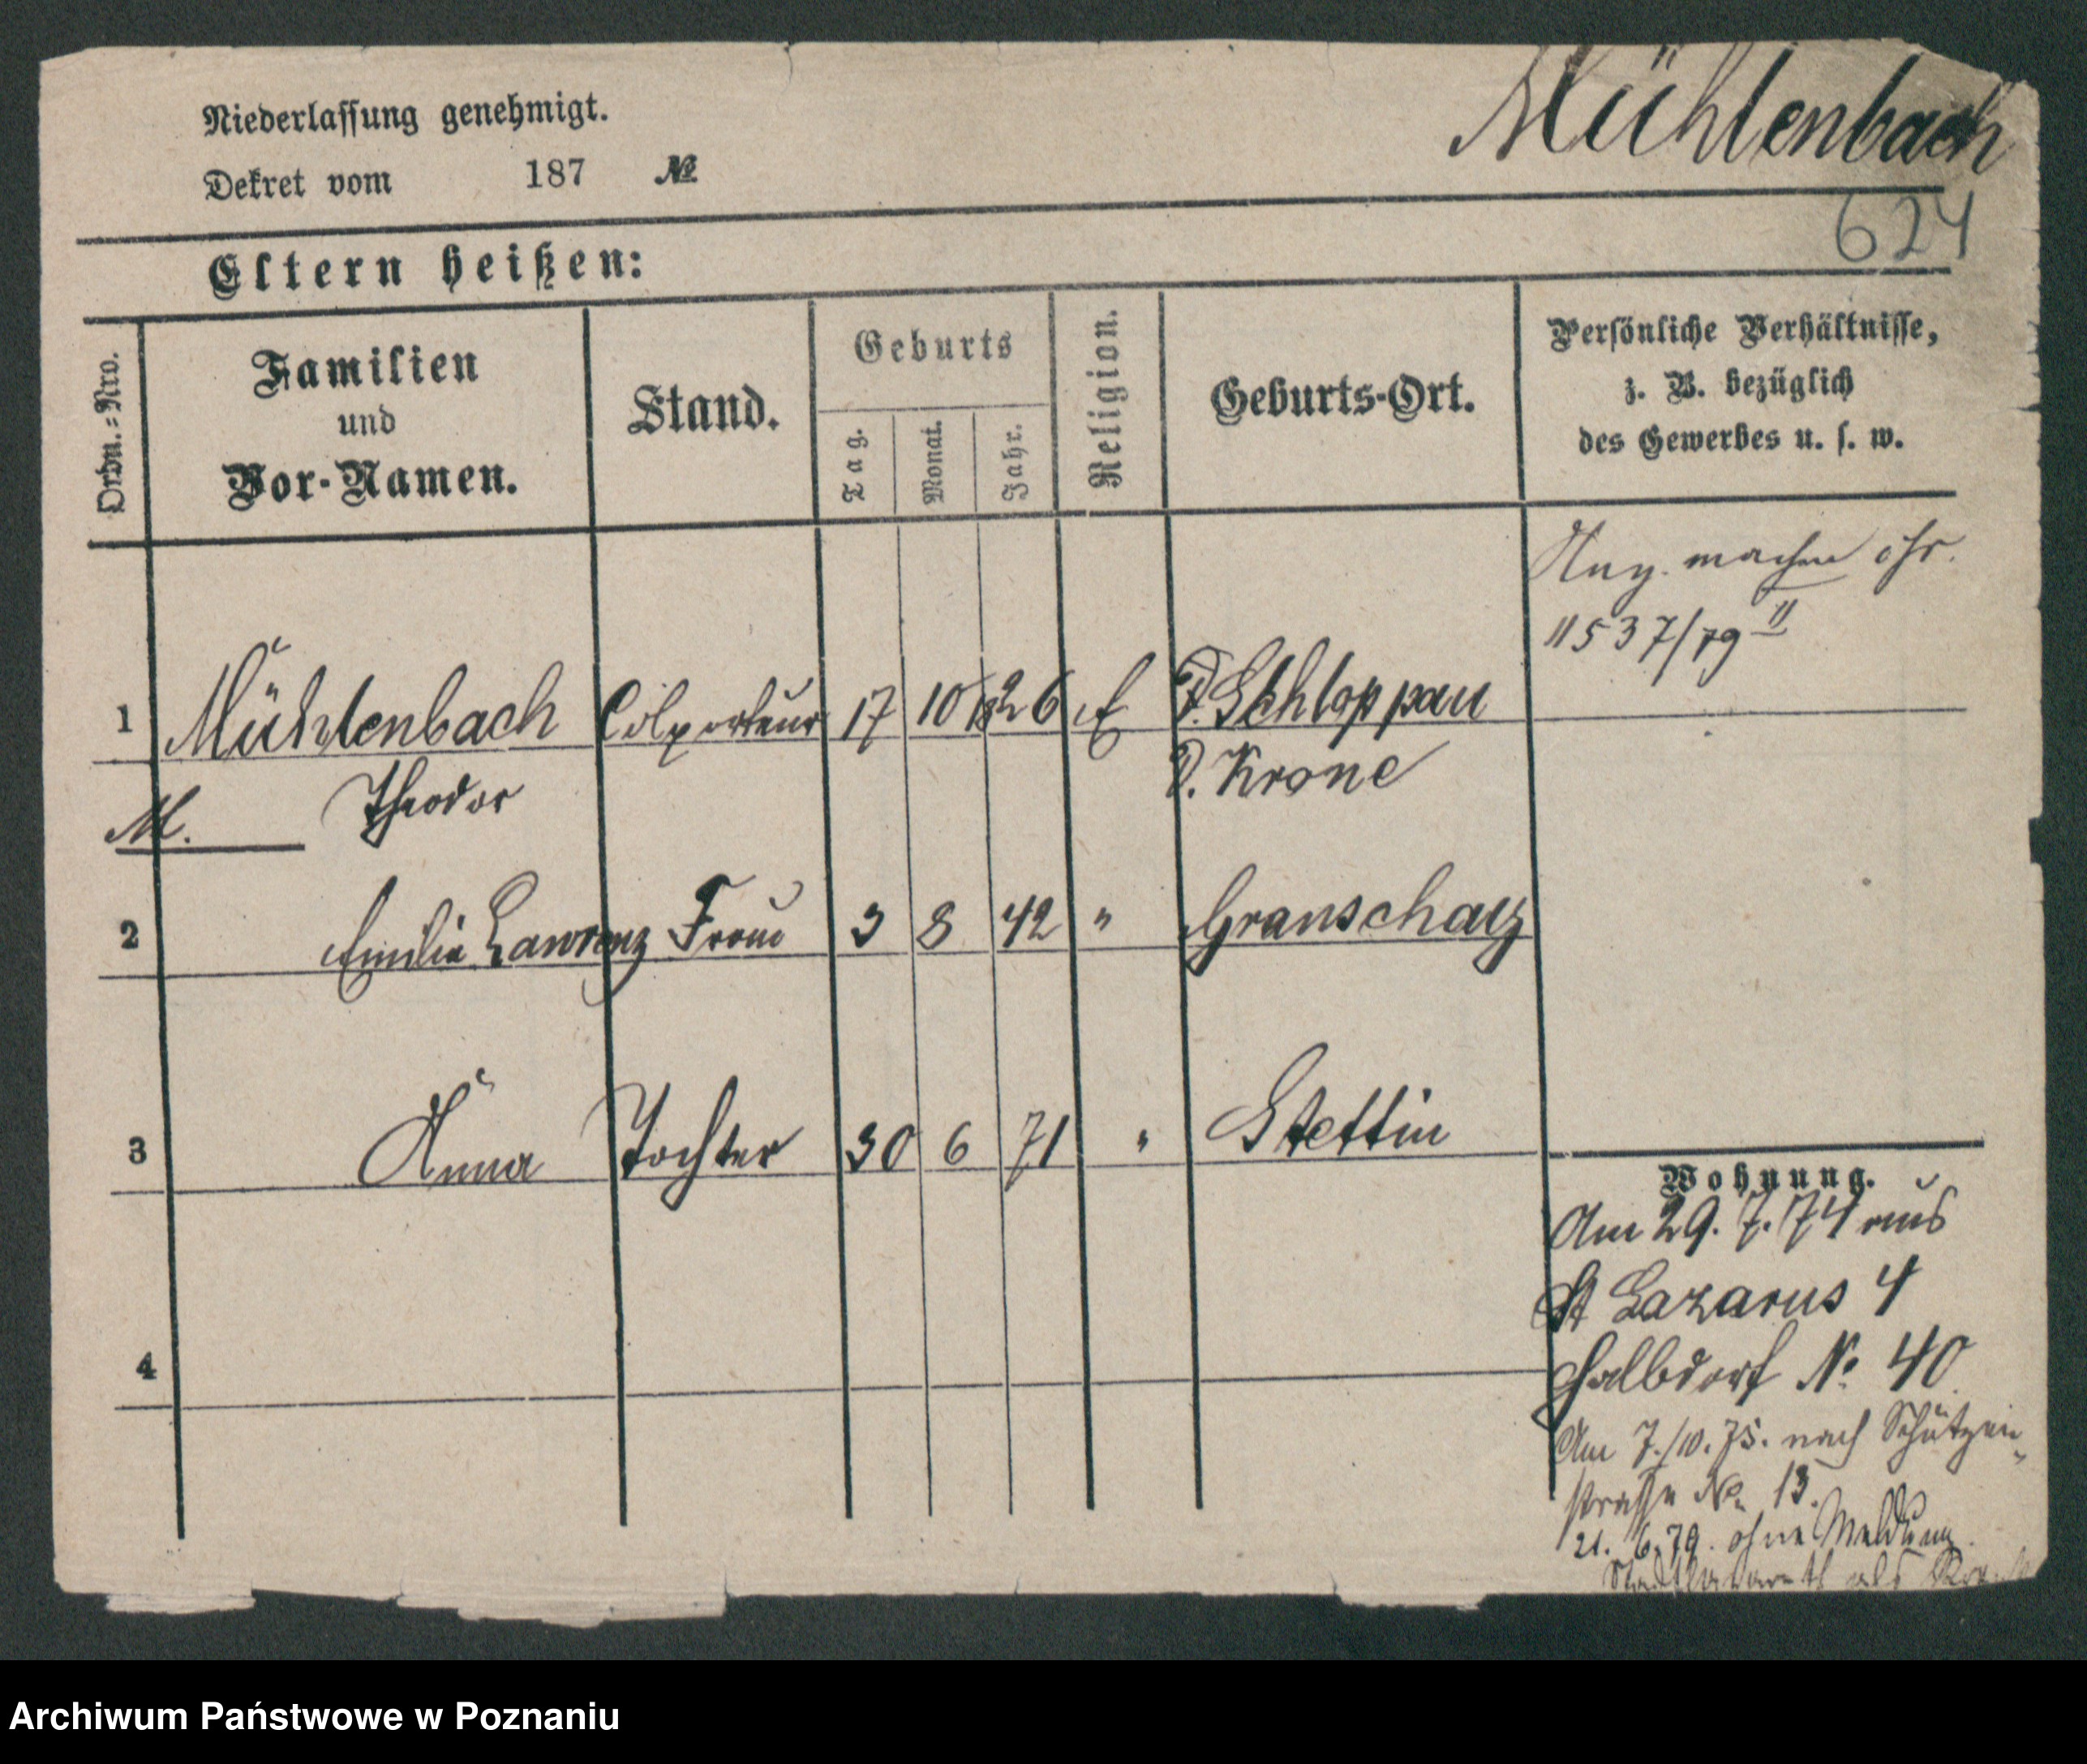 Mühlenbach
Niederlassung genehmigt.
Dekret vom 187 №
624
Eltern heißen:
Ordn.=Nro.
Familien
und
Vor-Namen.
Stand.
Geburts
Tag.
Monat.
Jahr.
Religion.
Geburts-Ort.
Persönliche Verhältnisse,
z. B. bezüglich
des Gewerbes u. s. w.
11537/79 II
1 Mühlenbach Colporteur 17 10 1826 E D. Schloppau
M. Theodor D. Krone
2 Emilie Lawrenz Frau 3 8 42 " Granschatz
3 Anna Tochter 30 6 71 " Stettin
4
Wohnung.
Am 29. 7. 74 aus
St Lazarus 4
Halbdorf No 40
Am 7./10. 75. nach Schützen-
strasse No 13.
21. 6. 79. ohne Meldung